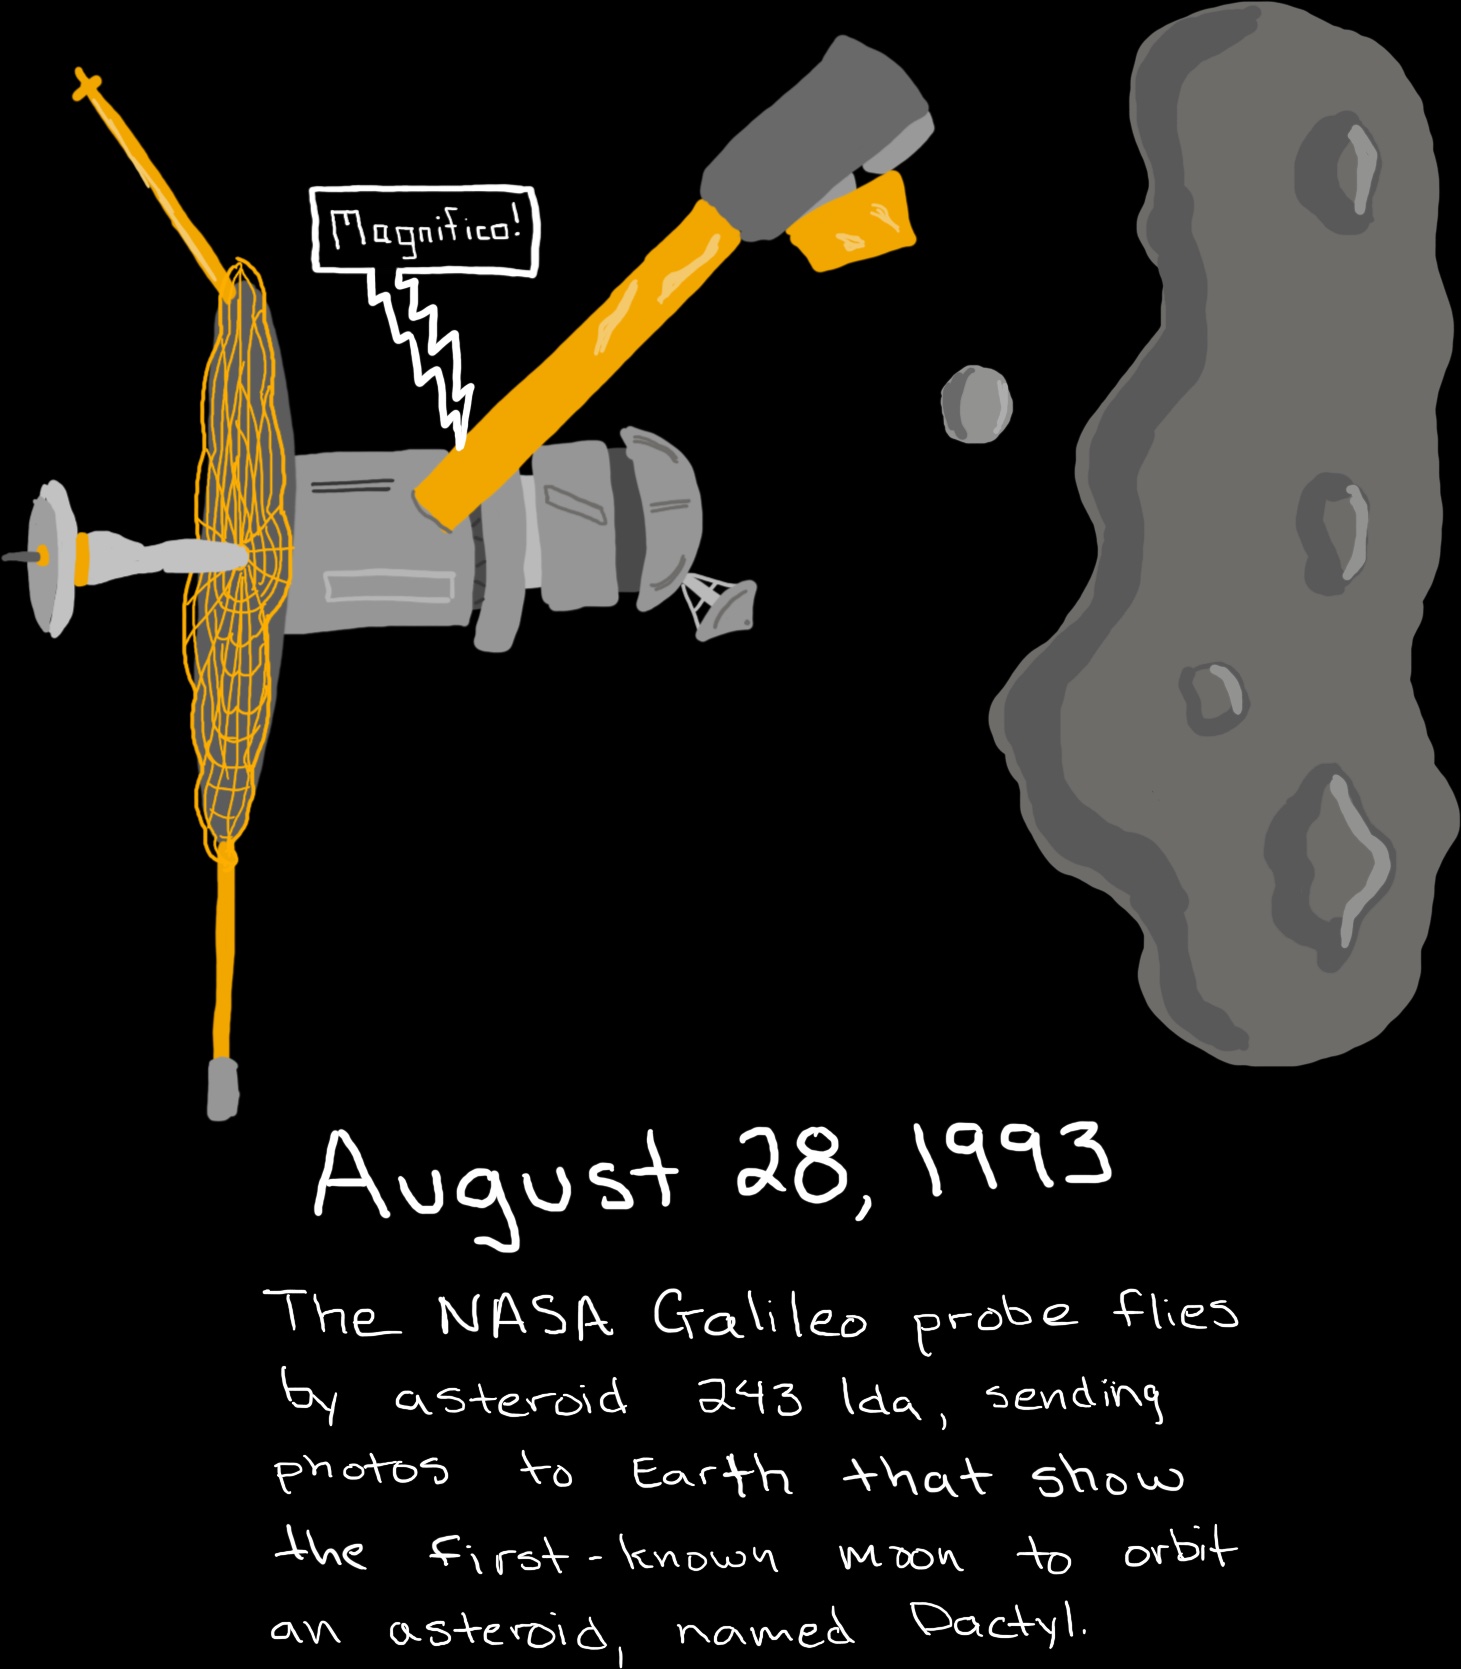 Magnifico!
August 28, 1993
The NASA Galileo probe flies
by asteroid 243 Ida, sending
photos to Earth that show
the first-known moon to orbit
an asteroid, named Dactyl.